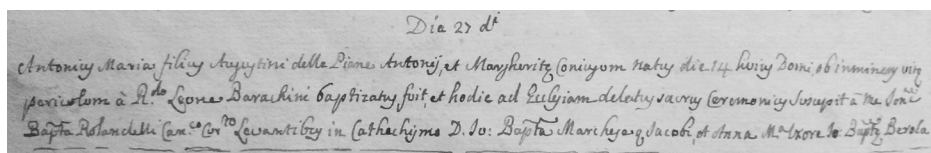 Dia 27 d.i
Antonius Maria filius Augustini delle Piane Antonij, et Margheritę Coniugum natus die 14 huius Domi, ob inminens
periculum à R.do Leone Barachini baptizatus fuit et hodie ad Ecclesiam delatus sacras Ceremonias suscepit à me
Bapta Rolandelli Can.co Levantibus in Cathechismo D. Io: Bapta Marchese q Jacobi, et Anna M.a Uxore Io: Baptę Berola